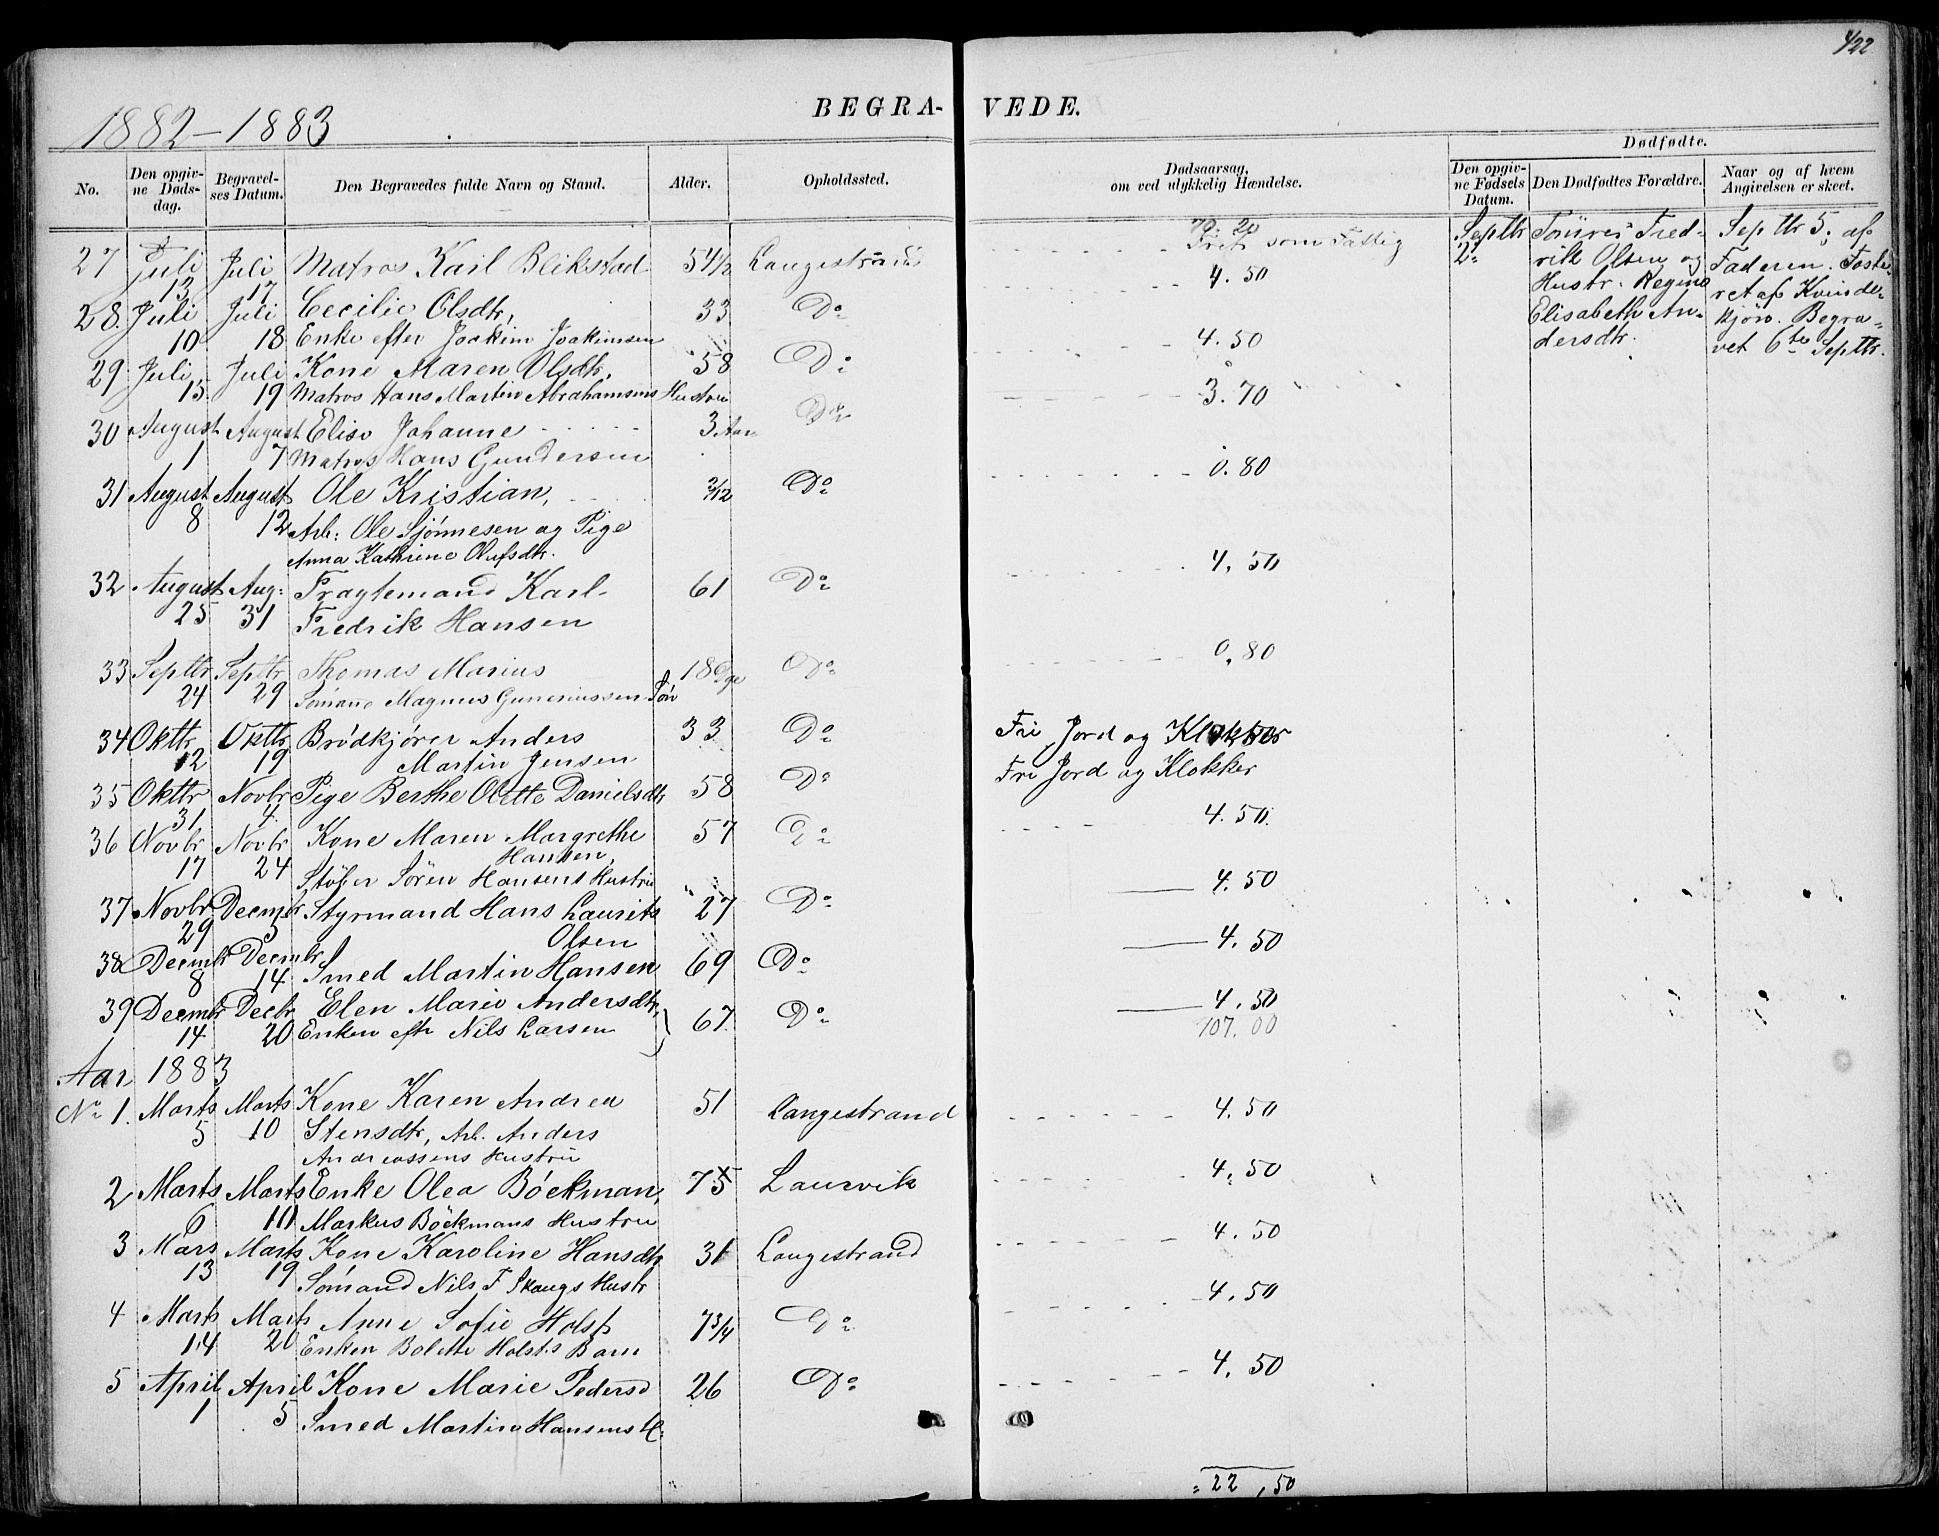 422
1882–1883
BEGRA- VEDE.
No. Den opgivne Dødsdag. Begravelses Datum. Den Begravedes fulde Navn og Stand. Alder. Opholdssted.
Dødsaarsag, om ved ulykkelig Hændelse.
Dødfødte.
Den opgivne Fødsels Datum. Den Dødfødtes Forældre. Naar og af hvem Angivelsen er skeet.
27 Juli Juli Matros Karl Blikstad 54 1/2 Langestrand
13 17
28. Juli Juli Cecilie Olsdtr, 33 Do
10 18 Enke efter Joakim Joakimsen
29 Juli Juli Kone Maren Olsdtr, 58 Do
15 19 Matros Hans Martin Abrahamsens Hustru
30 August August Elise Johanne 3 Aar Do
1 7 Matros Hans Gundersen
31 August August Ole Kristian, 3/12 Do
8 12 Arb: Ole Sjønnesen og Pige
Anna Kathrine Olufsdtr.
32 August Aug: Fragtemand Karl 61 Do
25 31 Fredrik Hansen
33 Septbr Septbr Thomas Marius 18 Dge Do
24 29 Sømand Magnus Gunerussen Søn
34 Oktbr Oktbr Brødkjører Anders 33 Do
12 19 Martin Jensen
35 Oktbr Novbr Pige Berthe Olette Danielsdtr 58 Do
31 4
36 Novbr Novbr Kone Maren Margrethe 57 Do
Hansen,
17 24 Støber Søren Hansens Hustru
37 Novbr Decmbr Styrmand Hans Laurits 27 Do
29 5 Olsen
38 Decmbr Decmbr Smed Martin Hansen 69 Do
8 14
39 Decmbr Decbr Elen Marie Andersdtr, 67 Do
14 20 Enken eftr Nils Larsen
Aar 1883
No 1. Marts Marts Kone Karen Andrea 51 Langestrand
5 10 Stensdtr, Arb. Anders
Andreassens Hustru
2 Marts Marts Enke Olea Böckman, 75 Laurvik
6 10 Markus Böckmans Hustru
3 Mars Marts Kone Karoline Hansdtr 31 Langestrand
13 19 Sømand Nils F Skaugs Hustr
4 Marts Marts Anne Sofie Holst 7 3/4 Do
14 20 Enken Bolette Holsts Barn
5 April April Kone Marie Pedersd 26 Do
1 5 Smed Martin Hansens H:
79. 20
Frit som Fattig
4.50
4.50
3.70
0.80
4.50
0.80
Fri Jord og Klokker
Fri Jord og Klokker
4.50.
4.50
4.50
4.50
107.00
4.50
4.50
4.50
4.50
4.50
= 22,50
Septbr
2
Fred-
rik Olsen og
Hustr. Regine
Elisabeth An-
dersdtr.
Septbr 5, af
Faderen. Foste-
ret af Kvinde-
kjøn. Begra-
vet 6te Septbr.